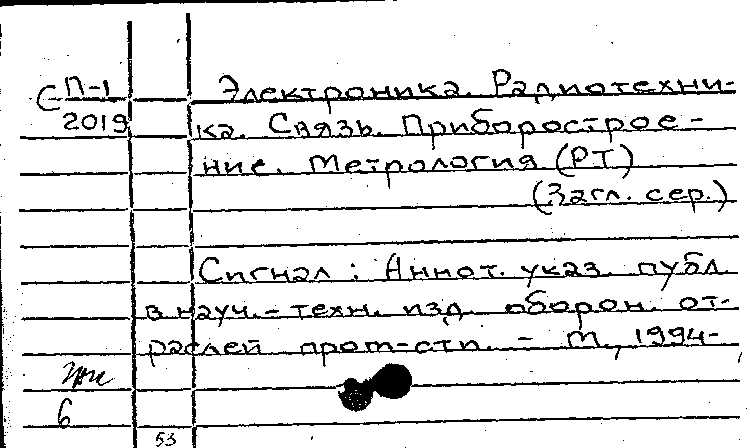 С П-1
2019
Электроника. Радиотехни-
ка. Связь. Приборострое-
ние. Метрология (РТ)
(Загл. сер.)
Сигнал : Аннот. указ. публ.
в науч.-техн. изд. оборон. от-
раслей пром-сти. - М., 1994-
6
53